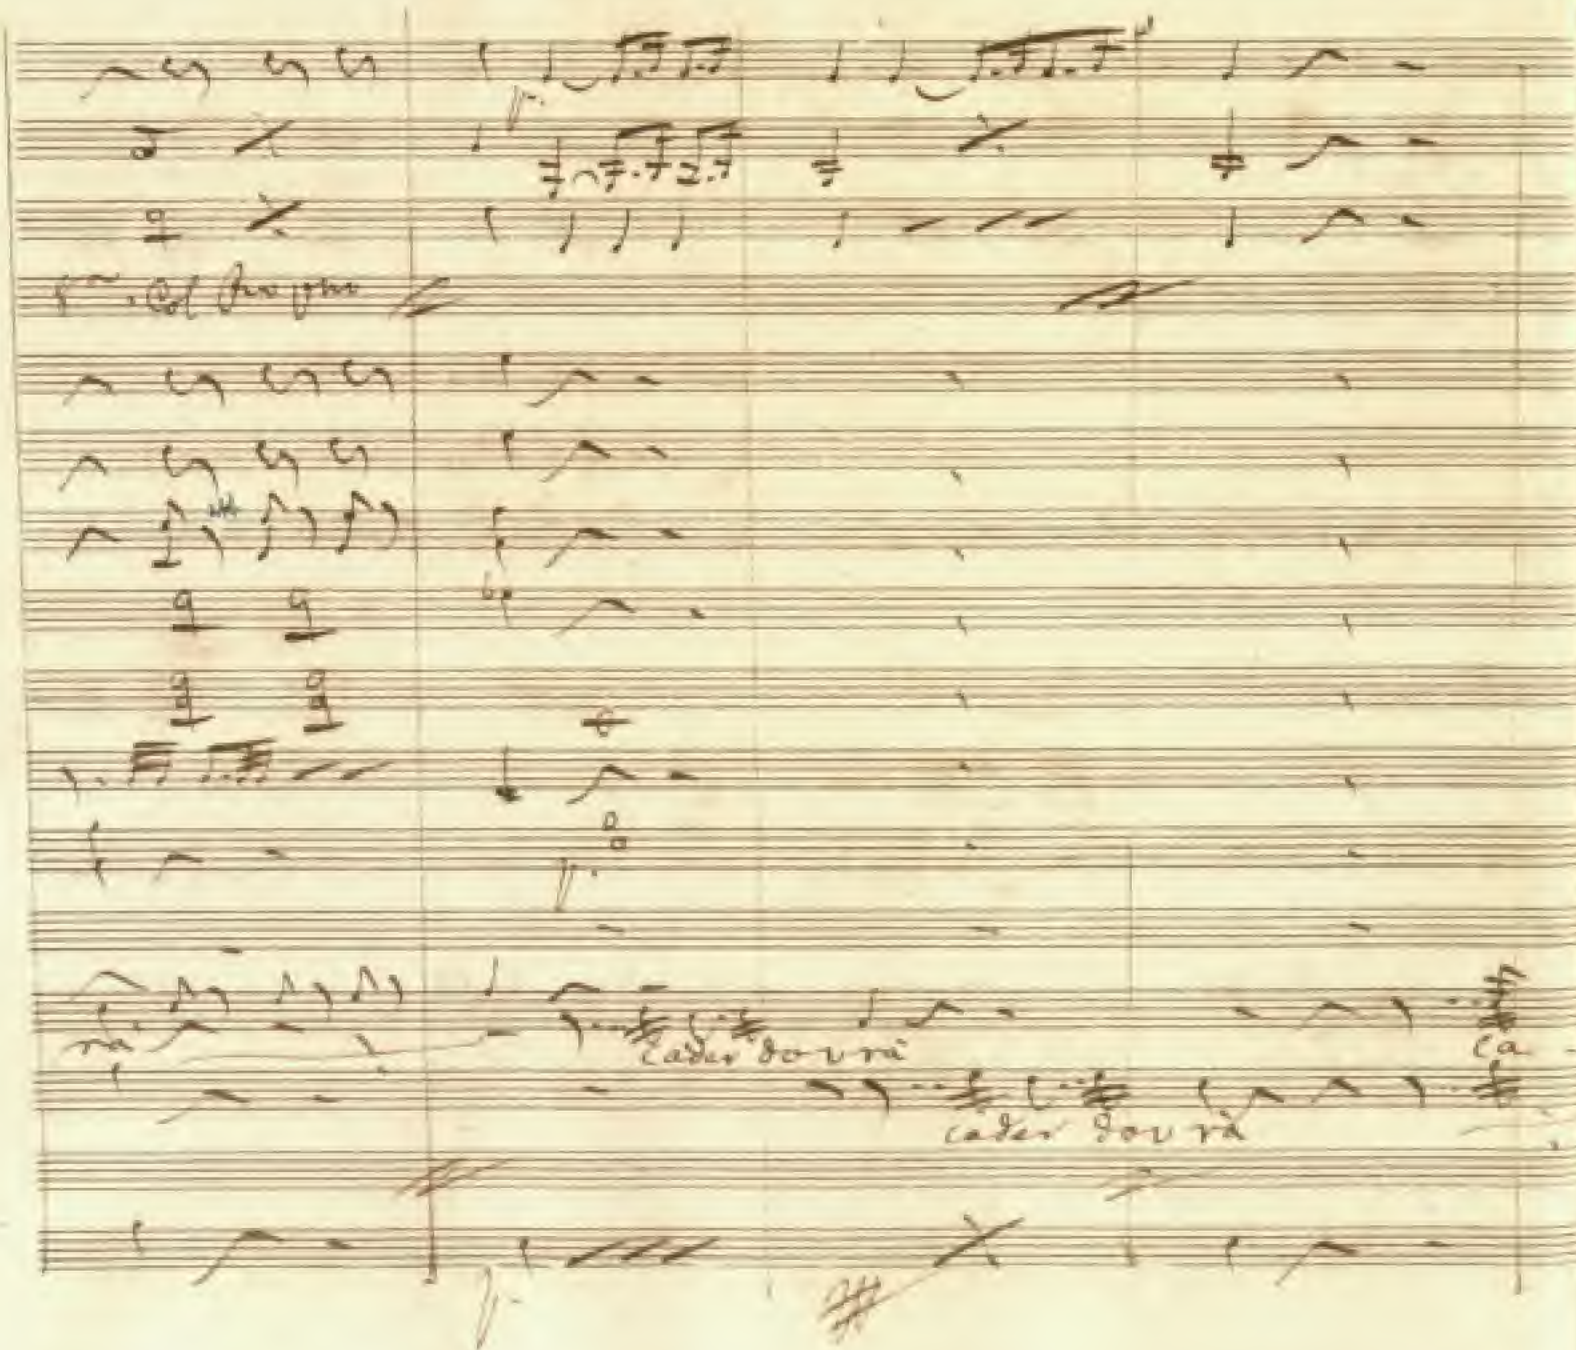 p.
Col
p.
rà cader dovrà ca-
cader dovrà
p.